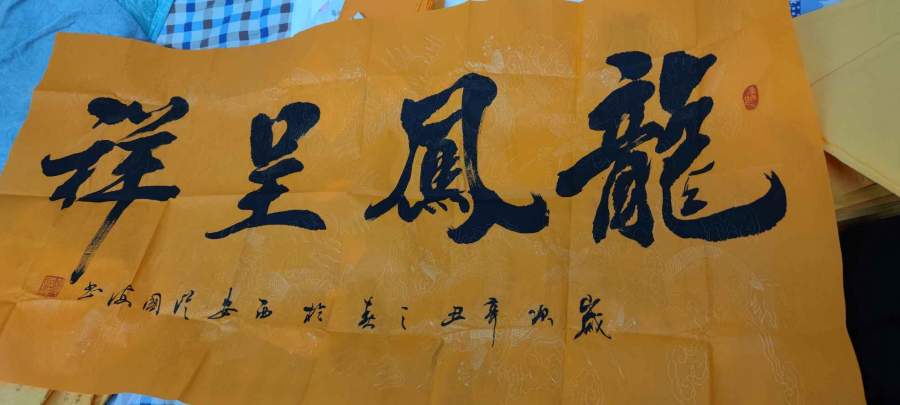 龍鳳呈祥
歲次辛丑之春於西安 國海書